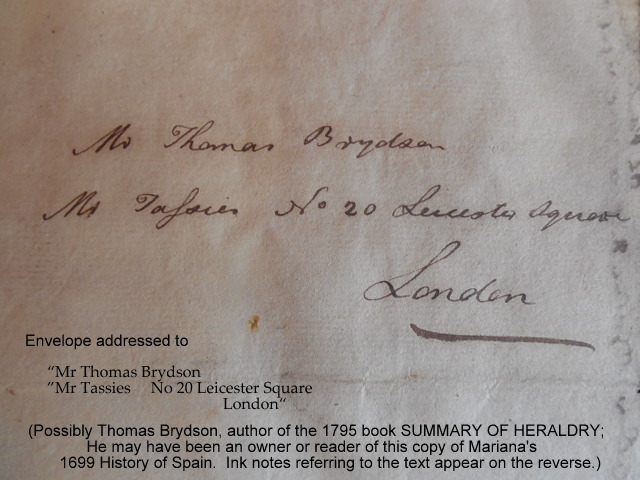 Mr Thomas Brydson
Mr Tassies No 20 Leicester Square
London
Envelope addressed to
“Mr Thomas Brydson
“Mr Tassies No 20 Leicester Square
London“
(Possibly Thomas Brydson, author of the 1795 book SUMMARY OF HERALDRY;
He may have been an owner or reader of this copy of Mariana's
1699 History of Spain. Ink notes referring to the text appear on the reverse.)